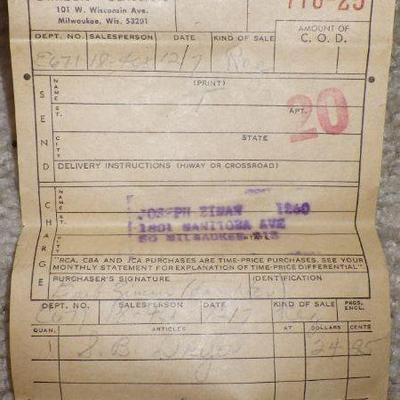 101 W. Wisconsin Ave.
Milwaukee, Wis. 53201
DEPT. NO. SALESPERSON DATE KIND OF SALE
AMOUNT OF
C. O. D.
E671 12/7
SEND
NAME (PRINT)
ST. APT.
20
CITY STATE
DELIVERY INSTRUCTIONS (HIWAY OR CROSSROAD)
CHARGE
NAME
JOSEPH 1260
ST.
1801 MANITOBA AVE
CITY
SO MILWAUKEE
"RCA, CBA AND JCA PURCHASES ARE TIME-PRICE PURCHASES. SEE YOUR
MONTHLY STATEMENT FOR EXPLANATION OF TIME-PRICE DIFFERENTIAL"
PURCHASER'S SIGNATURE IDENTIFICATION
DEPT. NO. SALESPERSON DATE KIND OF SALE PKGS. ENCL.
E671
QUAN. ARTICLES AT DOLLARS CENTS
1 S B 24 95